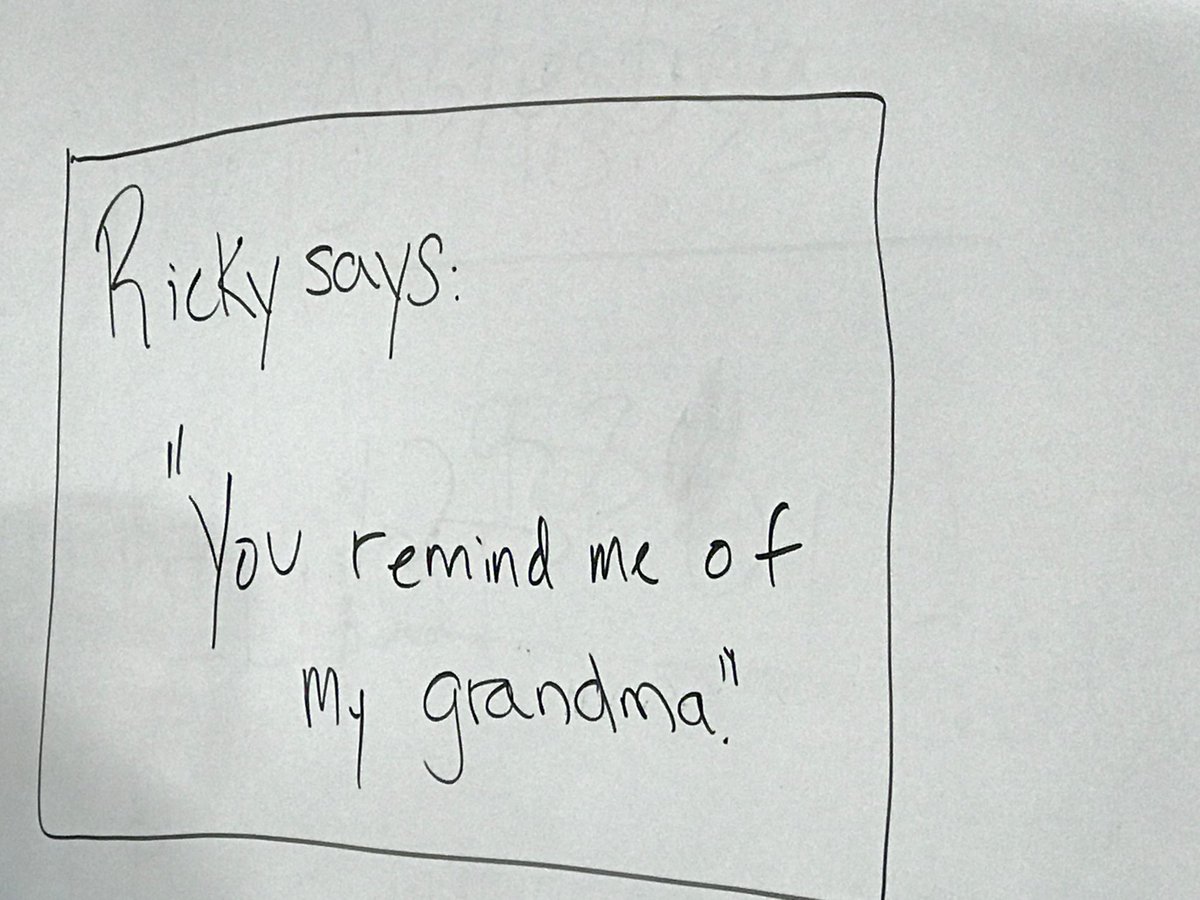 Ricky says:
"You remind me of
my grandma."